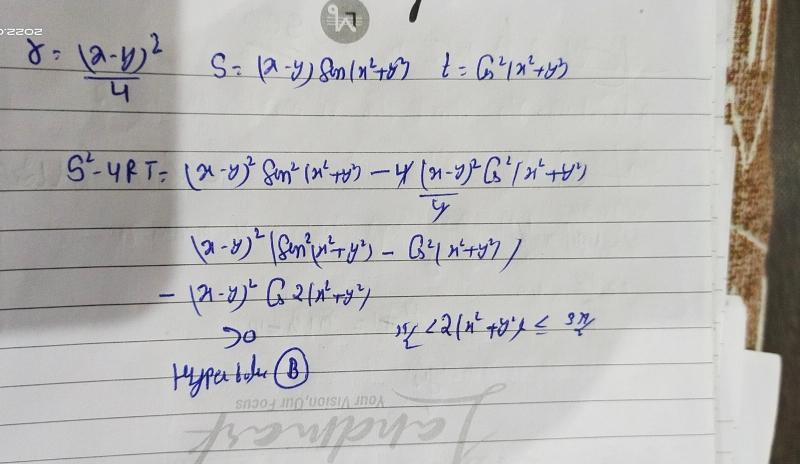 r = (x-y)²/4    S = (x-y) Sin(x²+y²)    t = Cos²(x²+y²)
S²-4RT = (x-y)² Sin²(x²+y²) - 4 (x-y)²/4 Cos²(x²+y²)
(x-y)² (Sin²(x²+y²) - Cos²(x²+y²))
- (x-y)² Cos 2(x²+y²)
>0    π/2 < 2(x²+y²) ≤ 3π/2
Hyperbolic (B)
Your Vision, Our Focus
Landmark